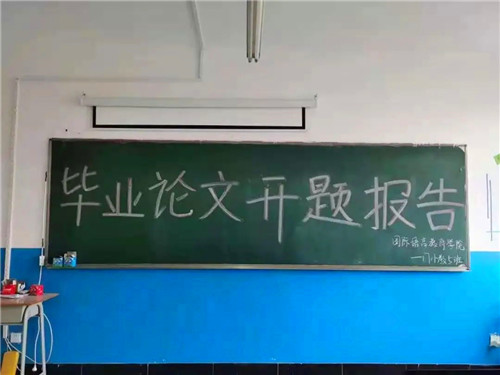 毕业论文开题报告
国际语言教育学院